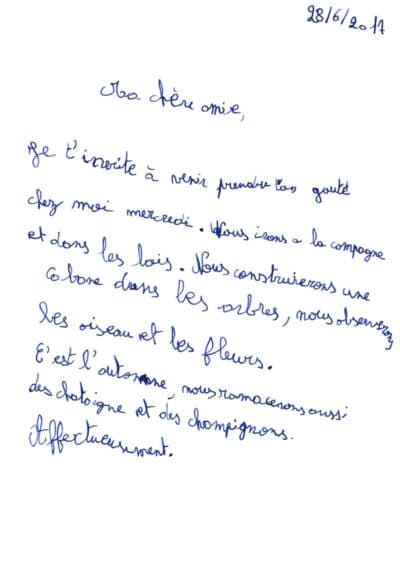 28/6/2017
Ma chère amie,
Je t'invite à venir prendre ton gouté
chez moi mercredi. Nous irons a la campagne
et dans les bois. Nous construirerons une
cabane dans les arbres, nous observerons
les oiseau et les fleurs.
C'est l'automne, nous ramacerons aussi
des chataigne et des champignons.
Affectueusement.